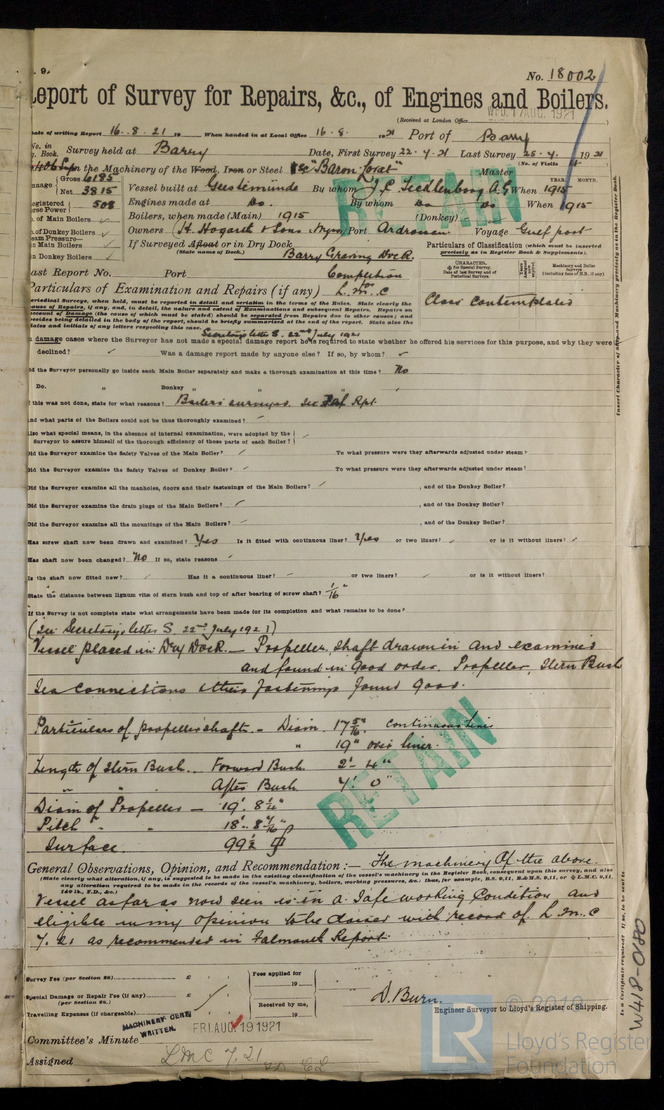 . 9.
No. 18002
Report of Survey for Repairs, &c., of Engines and Boilers.
(Received at London Office
WED. 17 AUG. 1921
Date of writing Report 16 . 8 . 21 19 When handed in at Local Office 16 . 8 . 1921 Port of Barry
No. in Survey held at Barry Date, First Survey 22 . 7 . 21 Last Survey 25 . 7 . 1921
Book. (No. of Visits
on the Machinery of the Wood, Iron or Steel "Baron Master
Gross 6185 YEAR. MONTH.
Tonnage Net 3815 Vessel built at Geestemünde By whom J. C. Tecklenborg A.G When 1915
Registered Horse Power 508 Engines made at do. By whom do do When 1915
No. of Main Boilers ✓ Boilers, when made (Main) 1915 (Donkey)
No. of Donkey Boilers ✓ Owners H. Hogarth & Sons Port Ardrossan Voyage Gulfport
Steam Pressure—
in Main Boilers ✓ If Surveyed Afloat or in Dry Dock Particulars of Classification (which must be inserted precisely as in Register Book & Supplements).
in Donkey Boilers ✓ (State name of Dock.) Barry Graving Dock.
Last Report No. Port Completion
Particulars of Examination and Repairs (if any) for L.M.C Class Contemplated
Secretary's letter S. 22nd July 1921
In damage cases where the Surveyor has not made a special damage report he is required to state whether he offered his services for this purpose, and why they were
declined? ✓ Was a damage report made by anyone else? If so, by whom? ✓
Did the Surveyor personally go inside each Main Boiler separately and make a thorough examination at this time? No
Do. " Donkey " " "
If this was not done, state for what reasons? Boilers surveyed. See Fal Rpt.
And what parts of the Boilers could not be thus thoroughly examined?
Also what special means, in the absence of internal examination, were adopted by the
Surveyor to assure himself of the thorough efficiency of those parts of each Boiler?
Did the Surveyor examine the Safety Valves of the Main Boiler? To what pressure were they afterwards adjusted under steam?
Did the Surveyor examine the Safety Valves of Donkey Boiler? To what pressure were they afterwards adjusted under steam?
Did the Surveyor examine all the manholes, doors and their fastenings of the Main Boilers? , and of the Donkey Boiler?
Did the Surveyor examine the drain plugs of the Main Boilers? , and of the Donkey Boiler?
Did the Surveyor examine all the mountings of the Main Boilers? , and of the Donkey Boiler?
Has screw shaft now been drawn and examined? Yes Is it fitted with continuous liner? Yes or two liners? ✓ or is it without liners? ✓
Has shaft now been changed? No If so, state reasons
Is the shaft now fitted new? Has it a continuous liner? or two liners? or is it without liners?
State the distance between lignum vitæ of stern bush and top of after bearing of screw shaft? 1/16"
If the Survey is not complete state what arrangements have been made for its completion and what remains to be done?
(See Secretary's letter S. 22nd July 1921)
Vessel placed in Dry Dock — Propeller shaft drawn in and examined
and found in Good order. Propeller, Stern Bush
Sea Connections & their fastenings found good.
Particulars of propeller shaft. - Diam. 17 5/16" continuous liner
" 19" over liner.
Length of Stern Bush .. Forward Bush 2'- 4"
" " " After Bush 4' 0"
Diam of Propeller — 19'. 8 1/4"
Pitch " " 18'. 8
Surface. 99 1/2
General Observations, Opinion, and Recommendation :— The machinery of the above
(State clearly what alteration, if any, is suggested to be made in the existing classification of the vessel's machinery in the Register Book, consequent upon this survey, and also
any alteration required to be made in the records of the vessel's machinery, boilers, working pressures, &c.
Vessel as far as now seen is in a safe working Condition and
eligible in my opinion to be classed with record of L.M.C
7. 21 as recommended in Falmouth Report.
Survey Fee (per Section 28) £ Fees applied for
19
Special Damage or Repair Fee (if any) £
(per Section 28.) Received by me,
Travelling Expenses (if chargeable) £ 19
D. Burn.
Engineer Surveyor to Lloyd's Register of Shipping.
MACHINERY CERT. WRITTEN.
FRI. AUG 19 1921
Committee's Minute
Assigned LMC 7.21
RETAIN
RETAIN
W418-0180
© 2019
LR
Lloyd's Register
Foundation